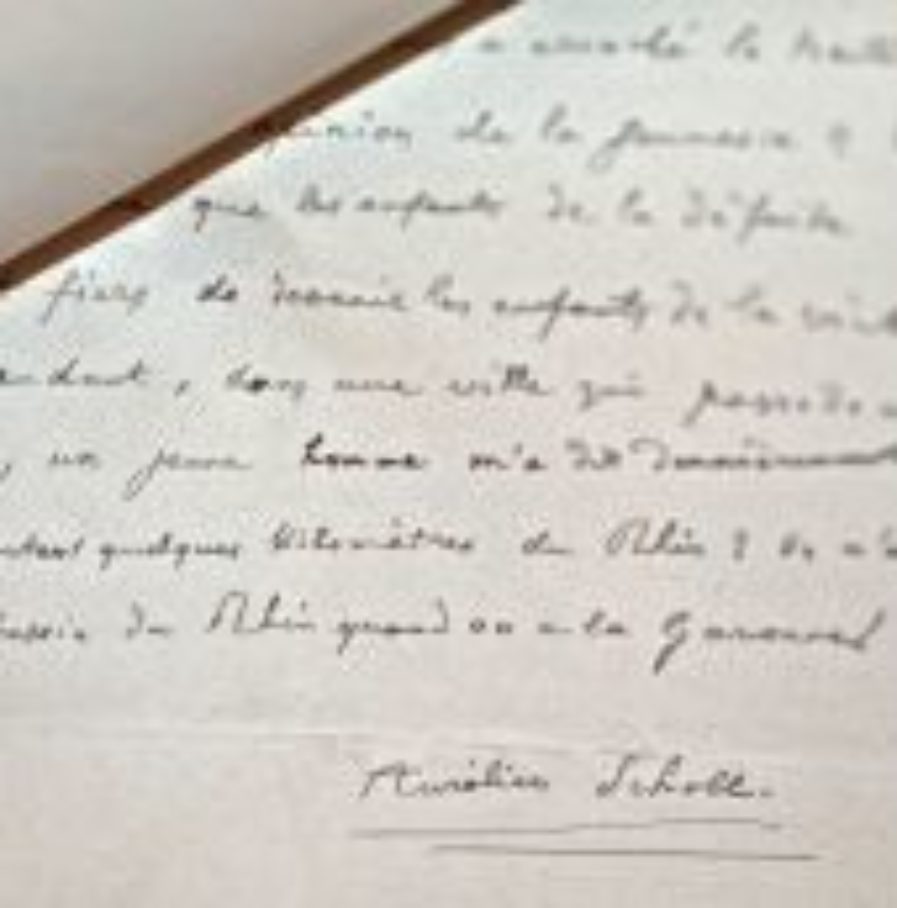 a arraché le traité
opinion de la jeunesse ?
que les enfants de la défaite
fiers de devenir les enfants de la
, dans une ville qui possède
, un jeune homme m'a dit dernièrement
quelques kilomètres du Rhin ? On n'a
du Rhin quand on a la Garonne !
Aurélien Scholl.